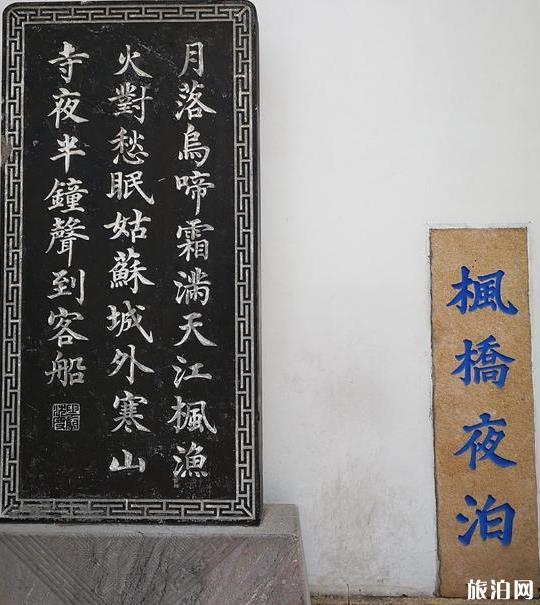 月落烏啼霜滿天江楓漁
火對愁眠姑蘇城外寒山
寺夜半鐘聲到客船
楓橋夜泊
旅泊网